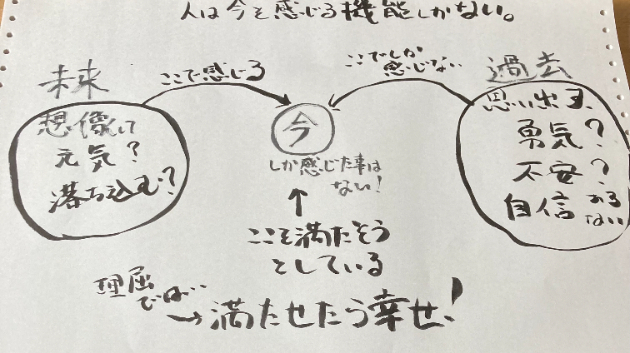 人は今を感じる機能しかない。
未来
ここで感じる
ここでしか
感じない
過去
想像して
元気?
落ち込む?
今
しか感じた事は
ない!
思い出す、
勇気?
不安?
自信 ある
ない
ここを満たそう
としている
理屈
では…
→満たせたら幸せ!